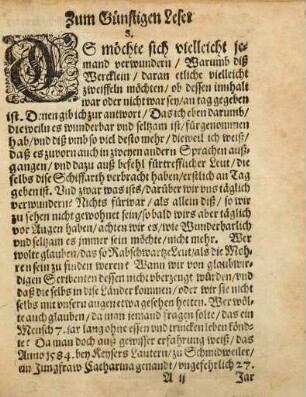 Zum Günstigen Leser
s.
DAS möchte sich vielleicht je-
mand verwundern / Warumb diß
Wercklein / daran etliche vielleicht
zweiffeln möchten / ob dessen innhalt
war oder nicht war sey / an tag gegeben
ist. Denen gib ich zur antwort / Das ich eben darumb /
die weiln es wunderbar und seltzam ist / fürgenommen
hab / und diß vmb so viel desto mehr / die weil ich weiß /
daß es zuvorn auch in zweyen andern Sprachen auß-
gangen / und dazu auß befehl fürtrefflicher Leut / die
selbs diese Schiffarth verbracht haben / erstlich an Tag
geben ist. Und zwar was ists / darüber wir uns täglich
verwundern? Nichts fürwar / als allein diß / so wir
zu sehen nicht gewohnet sein / so bald wirs aber täglich
vor Augen haben / achten wir es / wie Wunderbarlich
und seltzam es immer sein möchte / nicht mehr. Wer
wolte glauben / das so Rabschwartze Leut / als die Moh-
ren sein zu finden weren? Wann wir von glaubwir-
digen Scribenten dessen nicht vberzeugt würden / und
daß die selbs in diese Länder kommen / oder wir sie nicht
selbs mit vnsern augen etwa gesehen hetten. Wer wöl-
te auch glauben / da man jemand fragen solte / das ein
Mensch 7. jar lang ohne essen und trincken leben könd-
te? Da man doch auß gewisser erfahrung weiß / das
Anno 1584. bey Keysers Lautern / zu Schmidweiler /
ein Jungfraw Catharina genandt / ungefehrlich 27.
A ij Jar